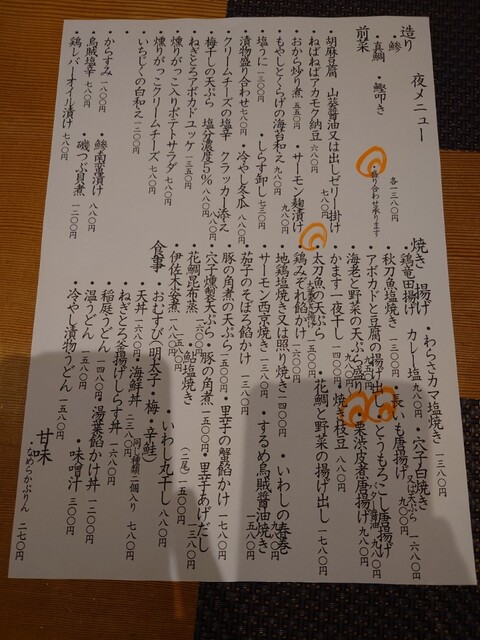 夜メニュー
造り
・鯵
・真鯛
・鰹叩き
各一三八〇円
・盛り合わせ承ります
前菜
・胡麻豆腐 山葵醤油又は出しゼリー掛け 七八〇円
・ねばねばアカモク納豆 六八〇円
・おから炒り煮 五五〇円
・サーモン麹漬け 九八〇円
・もやしとくらげの海苔和え 九八〇円
・塩うに 一三〇〇円
・しらす卸し 七三〇円
・漬物盛り合わせ 七八〇円
・冷やし冬瓜 八八〇円
・クリームチーズの塩辛 クラッカー添え 八八〇円
・梅干しの天ぷら 塩分濃度5% 八八〇円
・ねぎとろアボカドユッケ 一三五〇円
・燻りがっこ入りポテトサラダ 七八〇円
・燻りがっこクリームチーズ 七八〇円
・いちじくの白和え 一二〇〇円
・からすみ 一八〇〇円
・鯵南蛮漬け 八八〇円
・烏賊塩辛 七八〇円
・磯つぶ貝煮 一二〇〇円
・鶏レバーオイル漬け 七八〇円
焼き 揚げ
・わらさカマ塩焼き 一三八〇円
・鶏竜田揚げ カレー塩 九八〇円
・穴子白焼き 又は天ぷら 一六八〇円
・秋刀魚塩焼き 一三〇〇円
・長いも唐揚げ 九〇〇円
・アボカドと豆腐の揚げ出し 九五〇円
・とうもろこし唐揚げ バター醤油 九八〇円
・海老と野菜の天ぷら盛り 九八〇円
・栗渋皮煮唐揚げ 九八〇円
・かます一夜干し 一四〇〇円
・焼き枝豆 八八〇円
・太刀魚の天ぷら 一五〇〇円
・花鯛と野菜の揚げ出し 一五八〇円
・鶏みぞれ餡掛け
・地鶏塩焼き又は照り焼き 一四〇〇円
・いわしの春巻 九八〇円
・サーモン西京焼き 一三八〇円
・するめ烏賊醤油焼き 一五八〇円
・茄子のそぼろ餡かけ 一三八〇円
・豚の角煮の天ぷら 一五〇〇円
・里芋の蟹餡かけ 一七八〇円
・穴子燻製天ぷら
・豚の角煮
・里芋あげだし 一三八〇円
・花鯛昆布蒸 一六〇〇円
・鮎塩焼き (二尾) 一五八〇円
・伊佐木姿煮 一八八〇円
・いわし丸干し 八八〇円
食事
・おむすび (明太子・梅・辛鮭) 同じ種類二個入り
・天丼
・海鮮丼 二三八〇円
・ねぎとろ釜揚げしらす丼 一六八〇円
・稲庭うどん 一四八〇円
・湯葉餡かけ丼 一二〇〇円
・温うどん 一五八〇円
・味噌汁 三〇〇円
・冷やし漬物うどん 一五八〇円
甘味
・なめらかぷりん 二七〇円